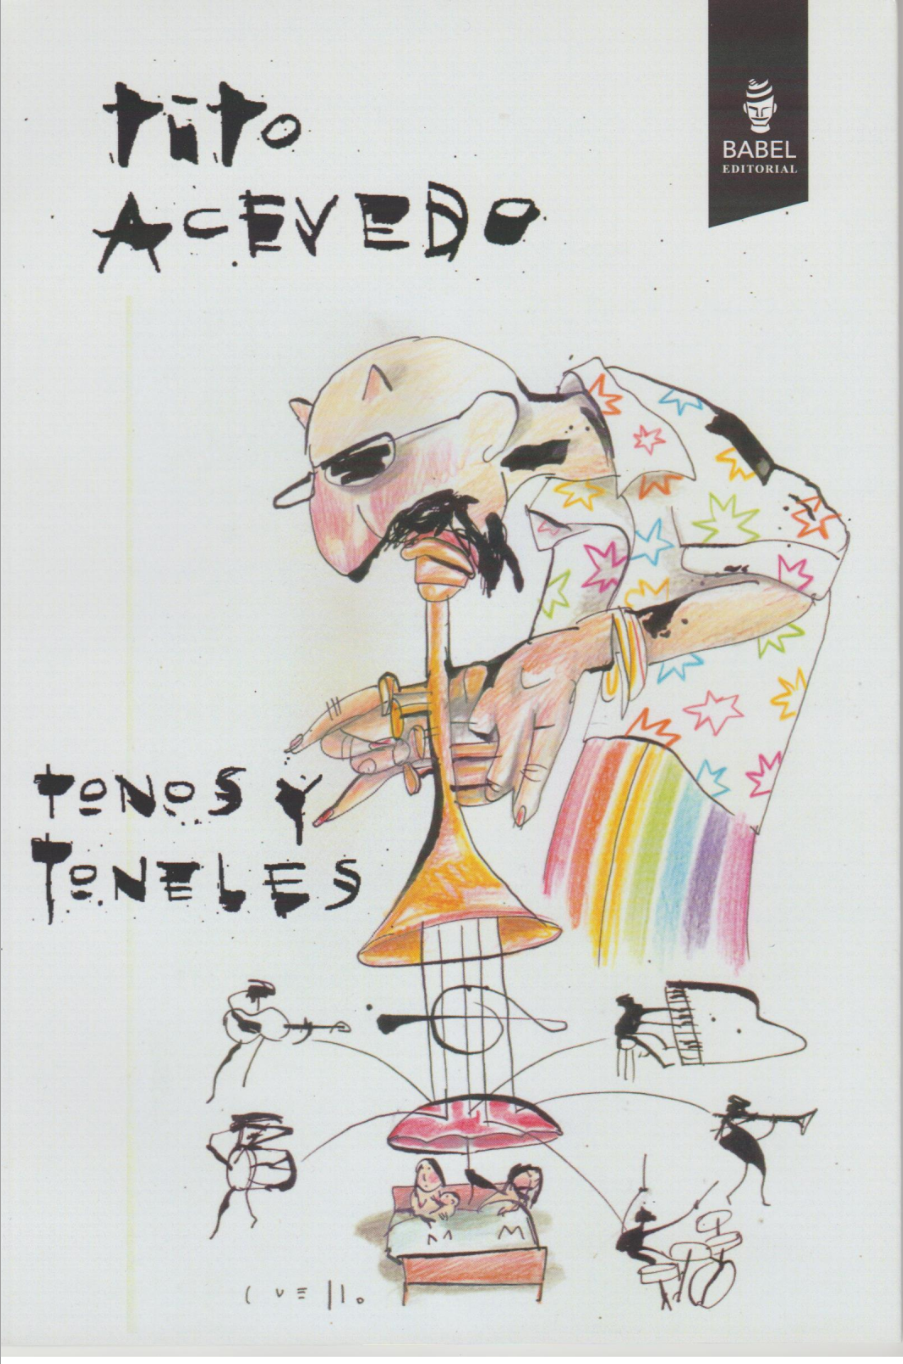 TITO
ACEVEDO
BABEL
EDITORIAL
TONOS Y
TONELES
CUELLO